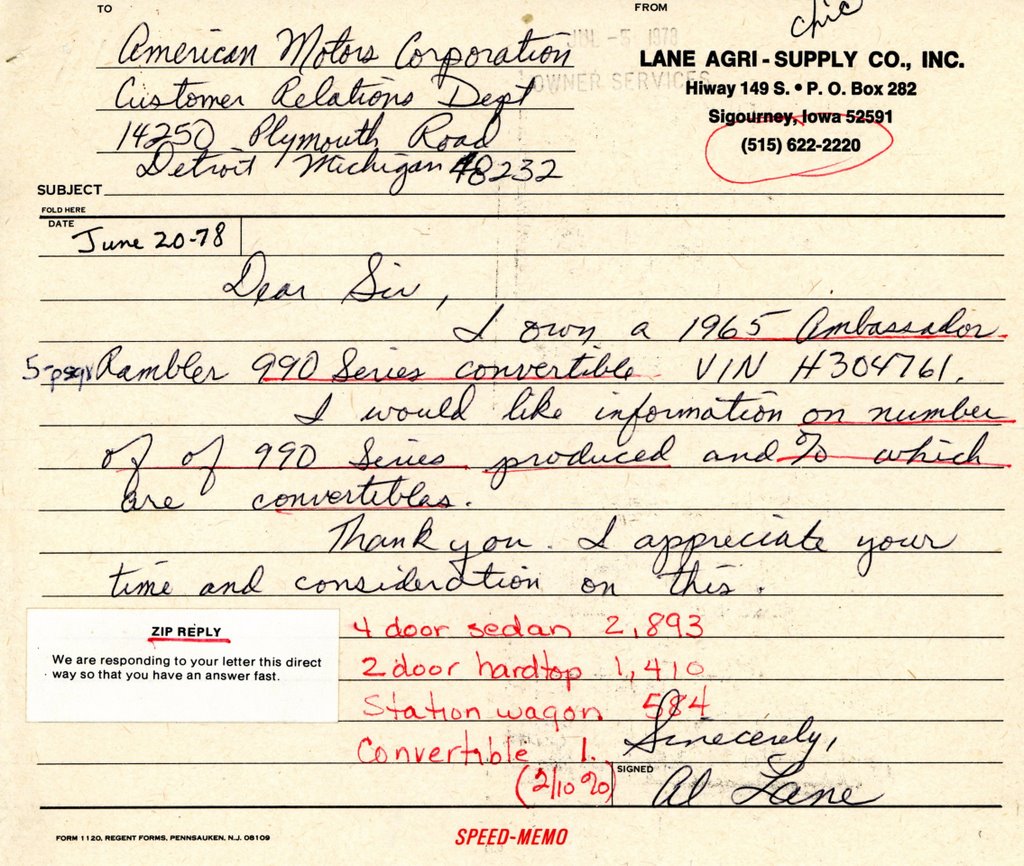 TO
FROM
chic
American Motors Corporation
JUL -5 1978
LANE AGRI-SUPPLY CO., INC.
Customer Relations Dept
OWNER SERVICES
Hiway 149 S. • P. O. Box 282
14250 Plymouth Road
Sigourney, Iowa 52591
Detroit Michigan 48232
(515) 622-2220
SUBJECT
FOLD HERE
DATE
June 20-78
Dear Sir,
I own a 1965 Ambassador
Rambler 990 Series convertible VIN H304761.
I would like information on number
of of 990 Series produced and % which
are convertibles.
Thank you. I appreciate your
time and consideration on this.
ZIP REPLY
We are responding to your letter this direct
way so that you have an answer fast.
4 door sedan 2,893
2 door hardtop 1,410
Station wagon 584
Convertible 1.
(2/10 %)
Sincerely,
SIGNED
Al Lane
FORM 1120, REGENT FORMS, PENNSAUKEN, N.J. 08109
SPEED-MEMO